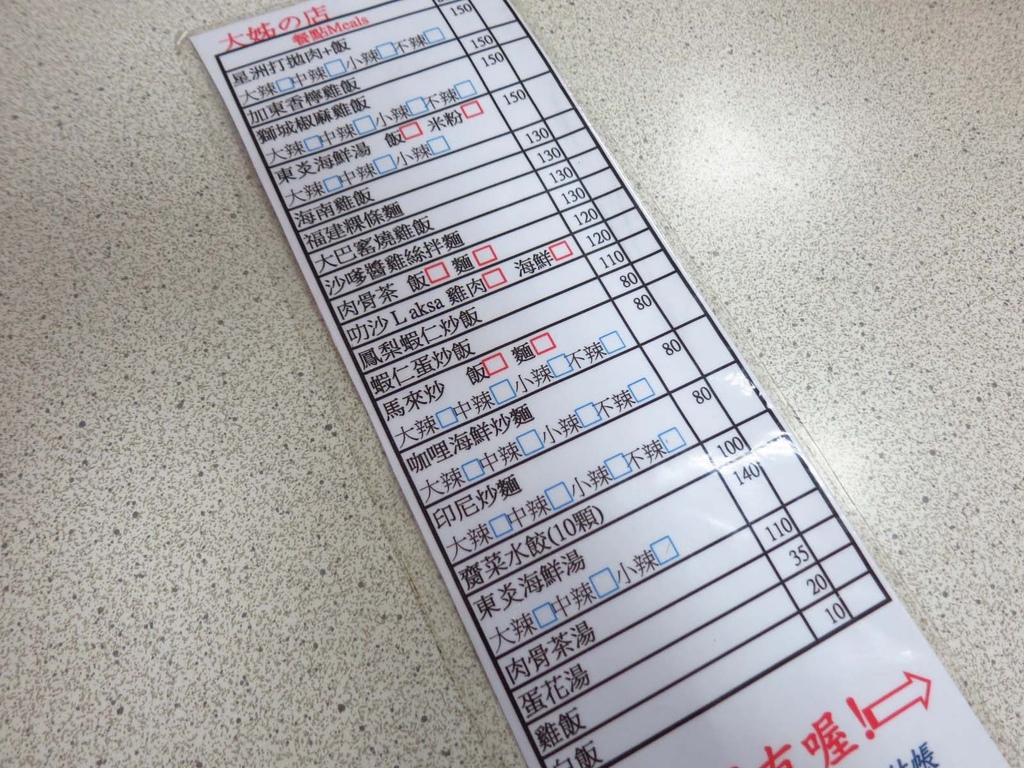 大姊の店
餐點Meals
星洲打拋肉+飯 150
大辣□中辣□小辣□不辣□
加東香檸雞飯 150
獅城椒麻雞飯 150
大辣□中辣□小辣□不辣□
東炎海鮮湯 飯□ 米粉□ 150
大辣□中辣□小辣□
海南雞飯 130
福建粿條麵 130
大巴窰燒雞飯 130
沙嗲醬雞絲拌麵 120
肉骨茶 飯□ 麵□ 120
叻沙Laksa 雞肉□ 海鮮□ 110
鳳梨蝦仁炒飯 80
蝦仁蛋炒飯 80
馬來炒 飯□ 麵□ 80
大辣□中辣□小辣□不辣□
咖哩海鮮炒麵 80
大辣□中辣□小辣□不辣□
印尼炒麵 100
大辣□中辣□小辣□不辣□
齋菜水餃(10顆) 140
東炎海鮮湯 110
大辣□中辣□小辣□
肉骨茶湯 35
蛋花湯 20
雞飯 10
白飯
喔!
帳